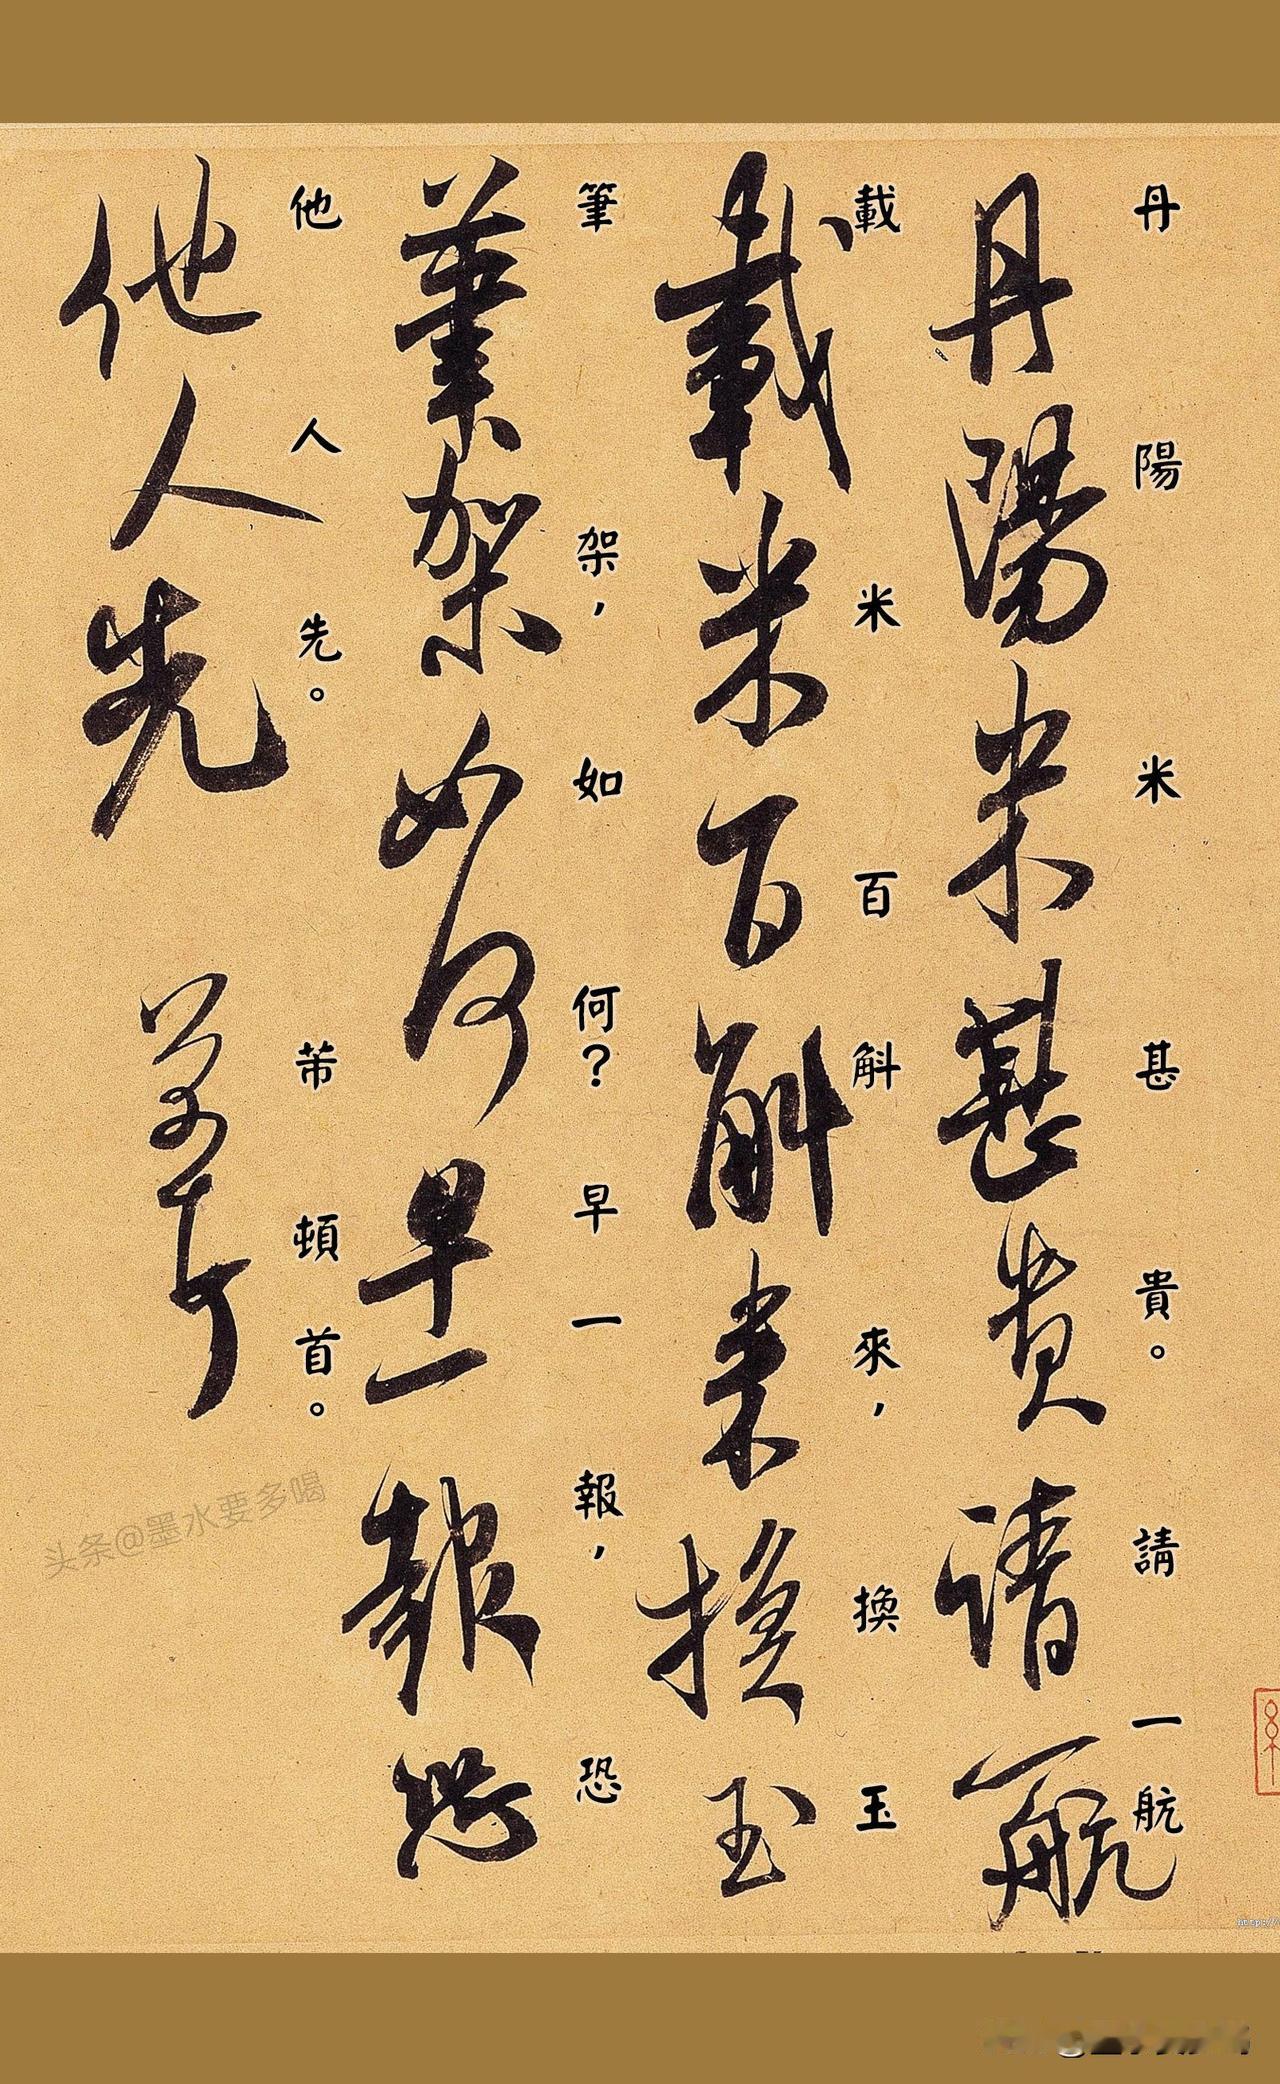 丹陽米甚貴。請一航
丹陽米甚貴請一航
載米百斛來，換玉
載米百斛来換玉
筆架，如何？早一報，恐
筆架如何早一報恐
他人先。芾頓首。
他人先芾頓首
头条@墨水要多喝
http://